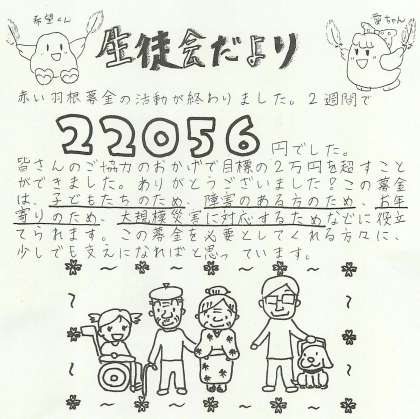 希望くん
愛ちゃん
生徒会だより
赤い羽根募金の活動が終わりました。2週間で
22056円でした。
皆さんのご協力のおかげで目標の2万円を超すこと
ができました。ありがとうございました!この募金
は、子どもたちのため、障害のある方のため、お年
寄りのため、大規模災害に対応するためなどに役立
てられます。この募金を必要としてくれる方々に、
少しでも支えになればと思っています。